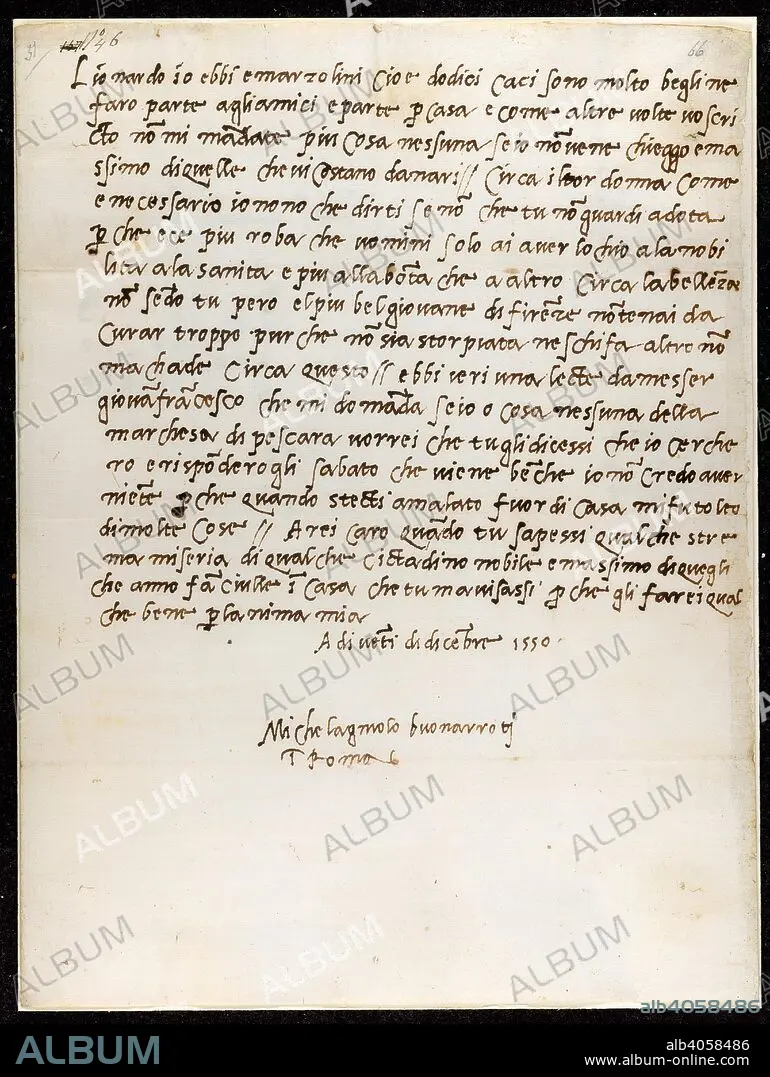 31
146
66
Lionardo io ebbi e marzolini cioe dodici caci sono molto begli ne
faro parte agli amici e parte p casa e come altre volte vo scri
cto nō mi mādate piu cosa nessuna se io nō ve ne chieggo e ma
ssimo di quelle che vi costano danari // Circa il tor donna come
e necessario io non o che dirti se nō che tu nō guardi a dota
p che ce e piu roba che uomini solo ai aver lochio a la nobi
lita a la sanita e piu alla bōta che a altro Circa la belleza
nō sēdo tu pero el piu bel giovane di firenze nō te nai da
curar troppo pur che nō sia storpiata ne schifa altro nō
machade Circa questo // ebbi ieri una lecte da messer
giovā frācesco che mi domāda se io o cosa nessuna della
marchesa di pescara vorrei che tu gli dicessi che io cerche
ro e rispōderogli sabato che viene bēche io nō credo aver
niēte p che quando stecti amalato fuor di casa mi fu tolto
di molte cose // Arei caro quādo tu sapessi qualche stre
ma miseria di qualche cictadino nobile e massimo di quegli
che anno fāciulle ī casa che tu mavisassi p che gli farei qual
che bene p lanima mia
A di vēti di dicēbre 1550
Michelagniolo buonarroti
ī Roma
ALBUM
alb4058486
ALBUM
alb4058486
www.album-online.com